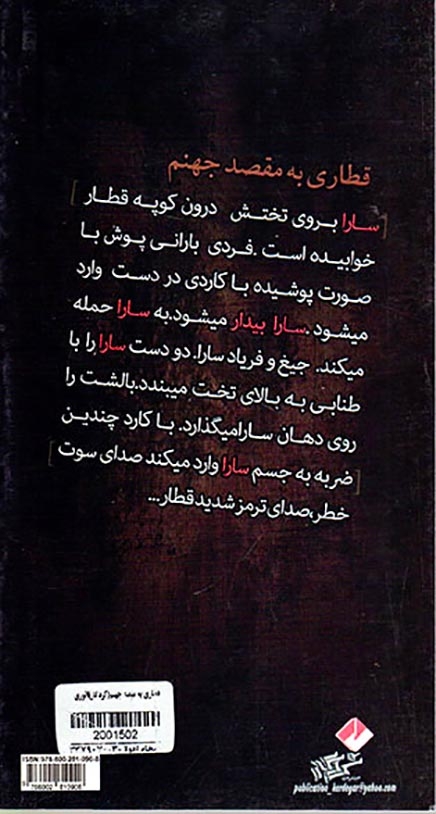 قطاری به مقصد جهنم
[سارا بروی تختش درون کوپه قطار
خوابیده است .فردی بارانی پوش با
صورت پوشیده با کاردی در دست وارد
میشود .سارا بیدار میشود.به سارا حمله
میکند. جیغ و فریاد سارا. دو دست سارا را با
طنابی به بالای تخت میبندد.بالشت را
روی دهان سارامیگذارد. با کارد چندین
ضربه به جسم سارا وارد میکند صدای سوت]
خطر،صدای ترمز شدید قطار...
2001502
publication_kardegar@yahoo.com